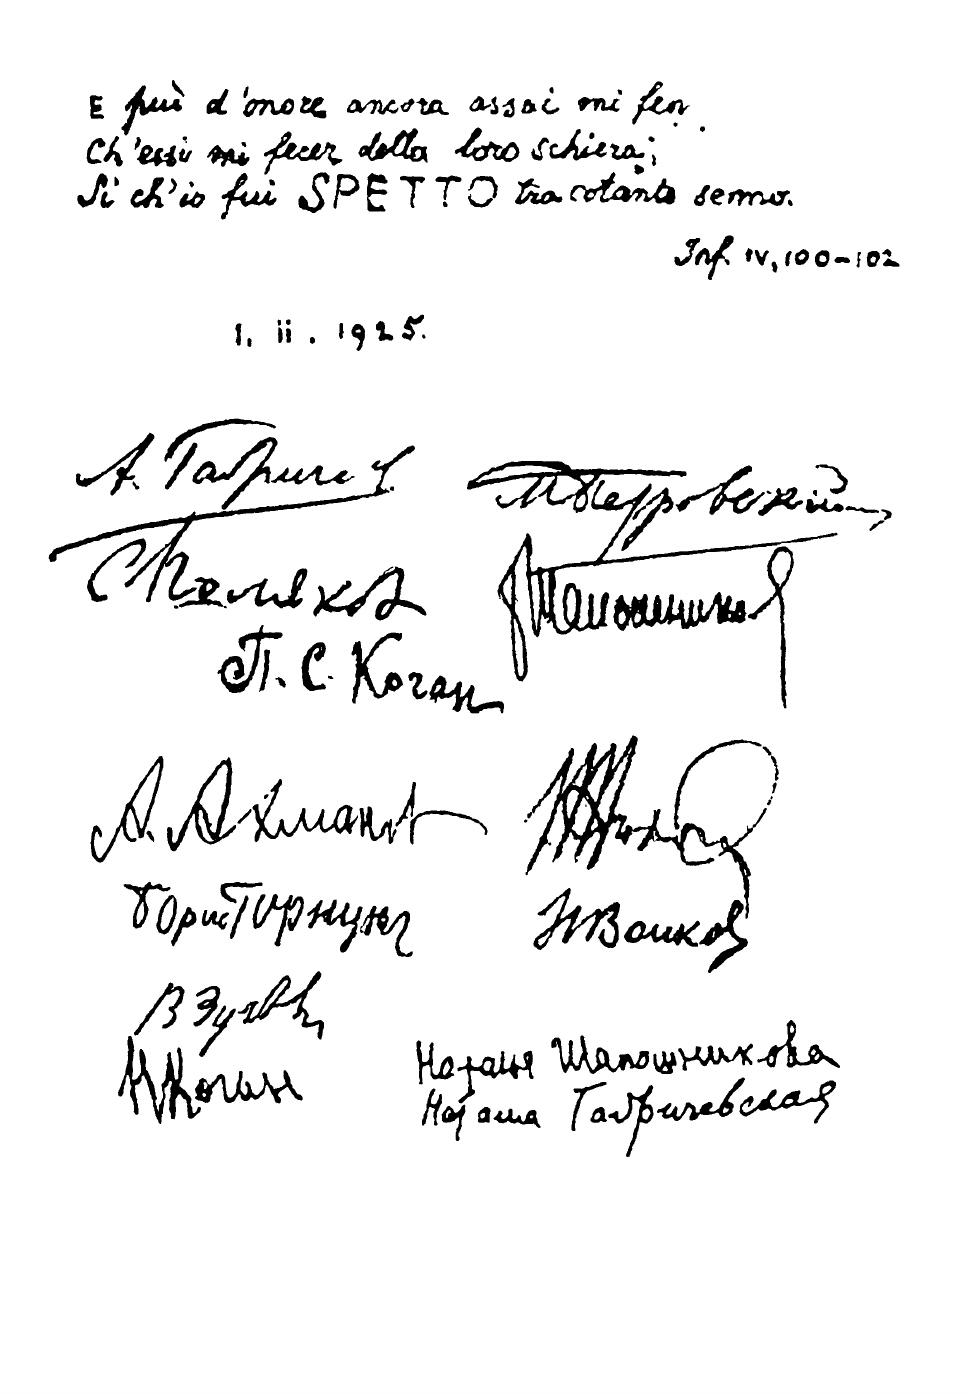 E più d'onore ancora assai mi fen
Ch'essi mi fecer della loro schiera;
Sì ch'io fui SPETTO tra cotanto senno.
Inf. IV, 100-102
1. ii. 1925.
А. Габрич
М Петровский
С Поляков
Шапошников
П. С. Коган
А. Ахманов
Борис Горнунг
Н Волков
В Зу
Н Коган
Наталья Шапошникова
Наташа Габричевская